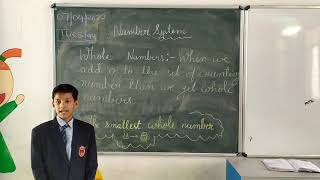 07/09/2022
Tuesday
Number System
Whole Numbers:- When we
add 0 to the set of counting
number then we get whole
numbers.
The smallest whole number
is 0